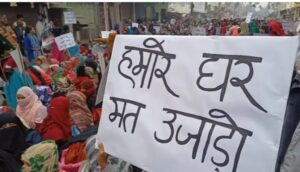 हमारे घर
मत उजाड़ो